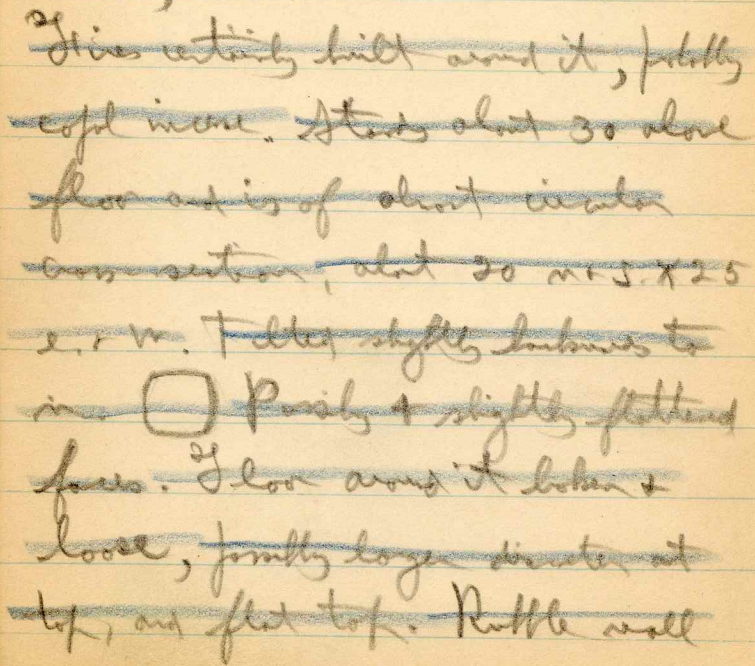 Fires certainly built around it, probably
copal incense. Stands about 30 above
floor and is of almost circular
cross section, about 20 n + s. x 25
e. + w. Tilted slightly backwards to
in. Possibly 4 slightly flattened
faces. Floor around it broken +
loose, possibly larger diameter at
top, and flat top. Rubble wall